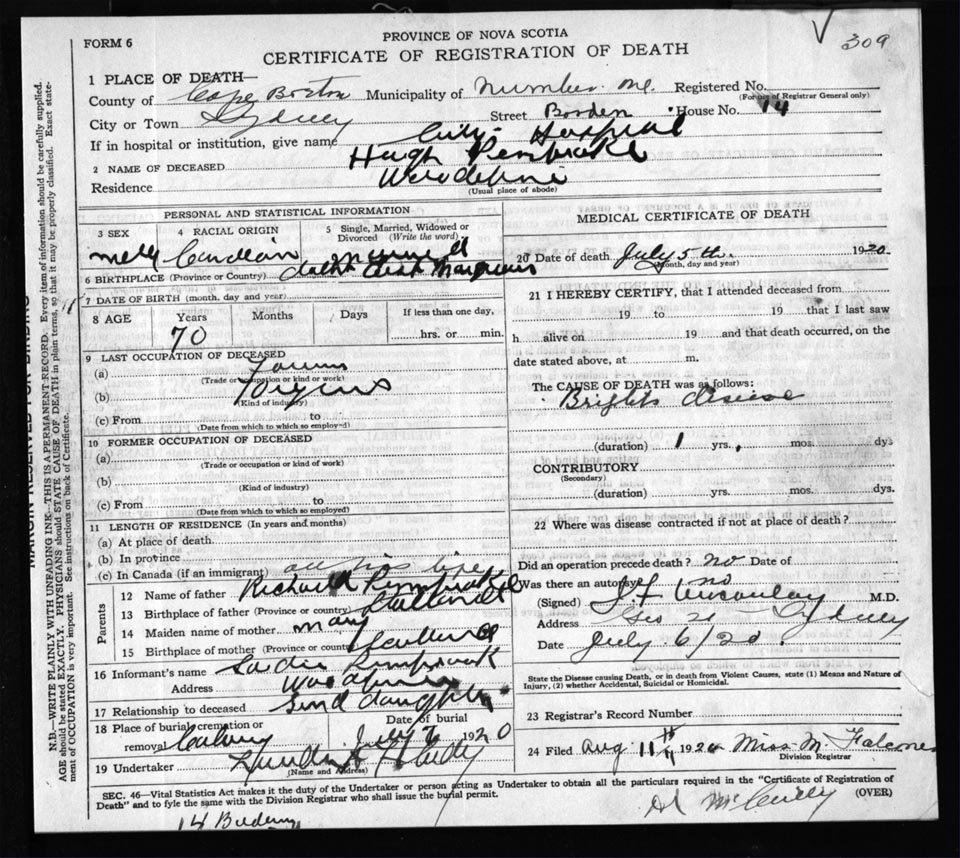 309
FORM 6
PROVINCE OF NOVA SCOTIA
CERTIFICATE OF REGISTRATION OF DEATH
1 PLACE OF DEATH—
County of Cape Breton Municipality of Number one Registered No.
(For use of Registrar General only)
City or Town Sydney Street Borden House No. 14
If in hospital or institution, give name City Hospital
2 NAME OF DECEASED Hugh
Residence
(Usual place of abode)
PERSONAL AND STATISTICAL INFORMATION
3 SEX 4 RACIAL ORIGIN 5 Single, Married, Widowed or Divorced (Write the word)
6 BIRTHPLACE (Province or Country)
7 DATE OF BIRTH (month, day and year)
8 AGE Years Months Days If less than one day,
70 hrs. or min.
9 LAST OCCUPATION OF DECEASED
(a)
(Trade or occupation or kind or work)
(b)
(Kind of industry)
(c) From to
(Date from which to which so employed)
10 FORMER OCCUPATION OF DECEASED
(a)
(Trade or occupation or kind of work)
(b)
(Kind of industry)
(c) From to
(Date from which to which so employed)
11 LENGTH OF RESIDENCE (In years and months)
(a) At place of death
(b) In province
(c) In Canada (if an immigrant) all his life
Parents
12 Name of father Richard
13 Birthplace of father (Province or country)
14 Maiden name of mother Mary
15 Birthplace of mother (Province or country)
16 Informant's name Sadie
Address
17 Relationship to deceased daughter
18 Place of burial, cremation or removal Calvary Date of burial July 7 1920
19 Undertaker
(Name and Address)
MEDICAL CERTIFICATE OF DEATH
20 Date of death July 5th. 1920
(Month, day and year)
21 I HEREBY CERTIFY, that I attended deceased from
19 to 19 that I last saw
h alive on 19 and that death occurred, on the
date stated above, at m.
The CAUSE OF DEATH was as follows:
Brights disease
(duration) 1 yrs. mos. dys
CONTRIBUTORY
(Secondary)
(duration) yrs. mos. dys.
22 Where was disease contracted if not at place of death?
Did an operation precede death? no Date of
Was there an autopsy? no
(Signed) M.D.
Address Sydney
Date July 6/20
State the Disease causing Death, or in death from Violent Causes, state (1) Means and Nature of
Injury, (2) whether Accidental, Suicidal or Homicidal.
23 Registrar's Record Number
24 Filed Aug 11th 1920 Miss M.
Division Registrar
SEC. 46—Vital Statistics Act makes it the duty of the Undertaker or person acting as Undertaker to obtain all the particulars required in the "Certificate of Registration of
Death" and to fyle the same with the Division Registrar who shall issue the burial permit.
(OVER)
14
MARGIN RESERVED FOR BINDING
N.B.—WRITE PLAINLY WITH UNFADING INK—THIS IS A PERMANENT RECORD. Every item of information should be carefully supplied.
AGE should be stated EXACTLY. PHYSICIANS should STATE CAUSE OF DEATH in plain terms, so that it may be properly classified. Exact state-
ment of OCCUPATION is very important. See instructions on back of Certificate.